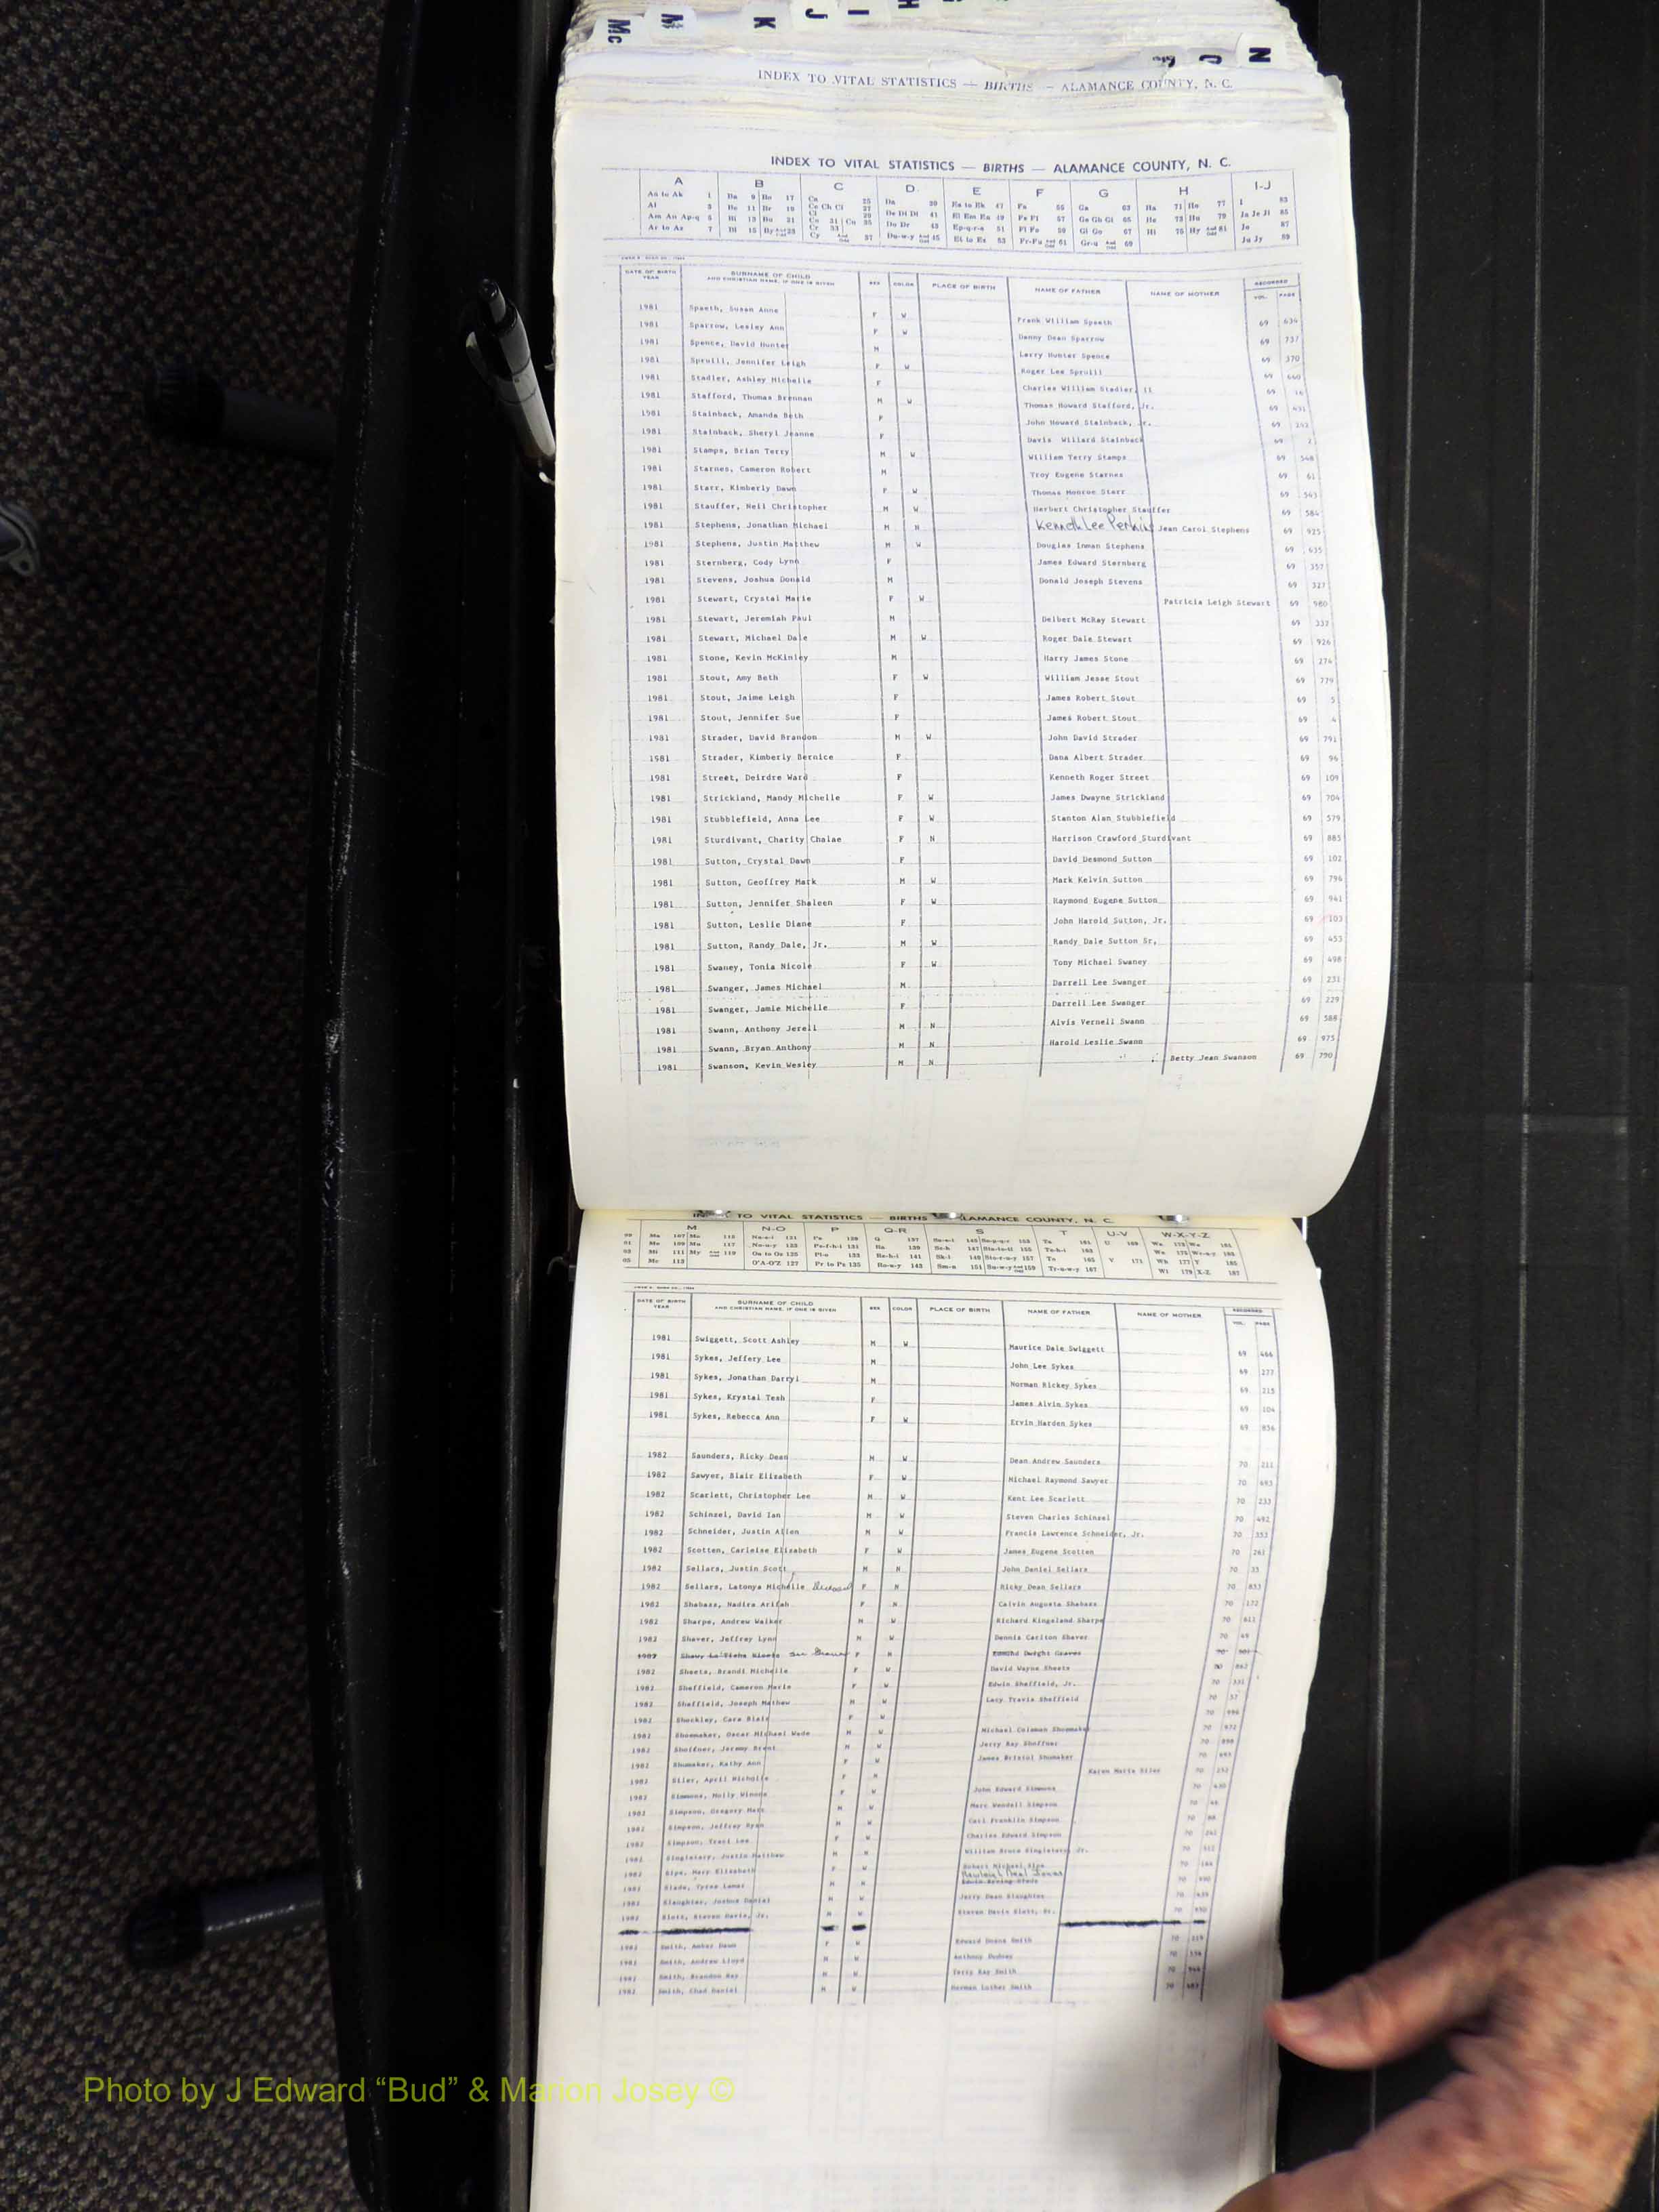 Mc M K J I H
N
INDEX TO VITAL STATISTICS — BIRTHS — ALAMANCE COUNTY, N. C.
INDEX TO VITAL STATISTICS — BIRTHS — ALAMANCE COUNTY, N. C.
A B C D E F G H I-J
DATE OF BIRTH YEAR SURNAME OF CHILD AND CHRISTIAN NAME, IF ONE IS GIVEN SEX COLOR PLACE OF BIRTH NAME OF FATHER NAME OF MOTHER RECORDED VOL. PAGE
1981 Spaeth, Susan Anne F W Frank William Spaeth 69 634
1981 Sparrow, Lesley Ann F W Danny Dean Sparrow 69 737
1981 Spence, David Hunter M Larry Hunter Spence 69 370
1981 Spruill, Jennifer Leigh F W Roger Lee Spruill 69 660
1981 Stadler, Ashley Michelle F Charles William Stadler, II 69 16
1981 Stafford, Thomas Brennan M W Thomas Howard Stafford, Jr. 69 431
1981 Stainback, Amanda Beth F John Howard Stainback, Jr. 69 242
1981 Stainback, Sheryl Jeanne F Davis Willard Stainback 69 2
1981 Stamps, Brian Terry M W William Terry Stamps 69 548
1981 Starnes, Cameron Robert M Troy Eugene Starnes 69 61
1981 Starr, Kimberly Dawn F W Thomas Monroe Starr 69 563
1981 Stauffer, Neil Christopher M W Herbert Christopher Stauffer 69 584
1981 Stephens, Jonathan Michael M N Kenneth Lee Perkins Jean Carol Stephens 69 925
1981 Stephens, Justin Matthew M W Douglas Inman Stephens 69 635
1981 Sternberg, Cody Lynn F James Edward Sternberg 69 357
1981 Stevens, Joshua Donald M Donald Joseph Stevens 69 327
1981 Stewart, Crystal Marie F W Patricia Leigh Stewart 69 980
1981 Stewart, Jeremiah Paul M Delbert McRay Stewart 69 337
1981 Stewart, Michael Dale M W Roger Dale Stewart 69 926
1981 Stone, Kevin McKinley M Harry James Stone 69 274
1981 Stout, Amy Beth F W William Jesse Stout 69 779
1981 Stout, Jaime Leigh F James Robert Stout 69 5
1981 Stout, Jennifer Sue F James Robert Stout 69 4
1981 Strader, David Brandon M W John David Strader 69 791
1981 Strader, Kimberly Bernice F Dana Albert Strader 69 96
1981 Street, Deirdre Ward F Kenneth Roger Street 69 109
1981 Strickland, Mandy Michelle F W James Dwayne Strickland 69 704
1981 Stubblefield, Anna Lee F W Stanton Alan Stubblefield 69 579
1981 Sturdivant, Charity Chalae F N Harrison Crawford Sturdivant 69 885
1981 Sutton, Crystal Dawn F David Desmond Sutton 69 102
1981 Sutton, Geoffrey Mark M W Mark Kelvin Sutton 69 796
1981 Sutton, Jennifer Shaleen F W Raymond Eugene Sutton 69 941
1981 Sutton, Leslie Diane F John Harold Sutton, Jr. 69 103
1981 Sutton, Randy Dale, Jr. M W Randy Dale Sutton Sr. 69 453
1981 Swaney, Tonia Nicole F W Tony Michael Swaney 69 498
1981 Swanger, James Michael M Darrell Lee Swanger 69 231
1981 Swanger, Jamie Michelle F Darrell Lee Swanger 69 229
1981 Swann, Anthony Jerell M N Alvis Vernell Swann 69 588
1981 Swann, Bryan Anthony M N Harold Leslie Swann 69 975
1981 Swanson, Kevin Wesley M N Betty Jean Swanson 69 790
TO VITAL STATISTICS — BIRTHS ALAMANCE COUNTY, N. C.
M N-O P Q-R S T U-V W-X-Y-Z
DATE OF BIRTH YEAR SURNAME OF CHILD AND CHRISTIAN NAME, IF ONE IS GIVEN SEX COLOR PLACE OF BIRTH NAME OF FATHER NAME OF MOTHER RECORDED VOL. PAGE
1981 Swiggett, Scott Ashley M W Maurice Dale Swiggett 69 466
1981 Sykes, Jeffery Lee M John Lee Sykes 69 277
1981 Sykes, Jonathan Darryl M Norman Rickey Sykes 69 215
1981 Sykes, Krystal Tesh F James Alvin Sykes 69 104
1981 Sykes, Rebecca Ann F W Ervin Harden Sykes 69 856
1982 Saunders, Ricky Dean M W Dean Andrew Saunders 70 211
1982 Sawyer, Blair Elizabeth F W Michael Raymond Sawyer 70 693
1982 Scarlett, Christopher Lee M W Kent Lee Scarlett 70 233
1982 Schinzel, David Ian M W Steven Charles Schinzel 70 492
1982 Schneider, Justin Allen M W Francis Lawrence Schneider, Jr. 70 353
1982 Scotten, Carleise Elizabeth F W James Eugene Scotten 70 261
1982 Sellars, Justin Scott M N John Daniel Sellars 70 33
1982 Sellars, Latonya Michelle Deceased F N Ricky Dean Sellars 70 853
1982 Shabazz, Nadira Arifah F N Calvin Augusta Shabazz 70 172
1982 Sharpe, Andrew Walker M W Richard Kingsland Sharpe 70 611
1982 Shaver, Jeffrey Lynn M W Dennis Carlton Shaver 70 49
1982 Shaw, See Graves F N Edmund Dwight Graves 70
1982 Sheets, Brandi Michelle F W David Wayne Sheets 70 862
1982 Sheffield, Cameron Marie F W Edwin Sheffield, Jr. 70 331
1982 Sheffield, Joseph Mathew M W Lacy Travis Sheffield 70 37
1982 Shockley, Cara Blair F W 70 996
1982 Shoemaker, Oscar Michael Wade M W Michael Coleman Shoemaker 70 972
1982 Shoffner, Jeremy Brent M W Jerry Ray Shoffner 70 898
1982 Shumaker, Kathy Ann F W James Bristol Shumaker 70
1982 Siler, April Michelle F N Karen Marie Siler 70 252
1982 Simmons, Molly Winona F W John Edward Simmons 70 430
1982 Simpson, Gregory Marc M W Marc Wendell Simpson 70
1982 Simpson, Jeffrey Ryan M W Carl Franklin Simpson 70 88
1982 Simpson, Traci Lee F W Charles Edward Simpson 70 241
1982 Singletary, Justin Matthew M William Bruce Singletary, Jr. 70
1982 Sipe, Mary Elizabeth F W Robert Michael Sipe 70
1982 Slade, Tyron Lamar M N 70
1982 Slaughter, Joshua Daniel M W Jerry Dean Slaughter 70
1982 Slott, Steven Davis, Jr. M W Steven Davis Slott, Sr. 70
1982 Smith, Amber Dawn F W Edward Smith 70
1982 Smith, Andrew Lloyd M W Anthony 70
1982 Smith, Brandon Ray M W Terry Ray Smith 70
1982 Smith, Chad Daniel M W Herman Luther Smith 70
Photo by J Edward “Bud” & Marion Josey ©